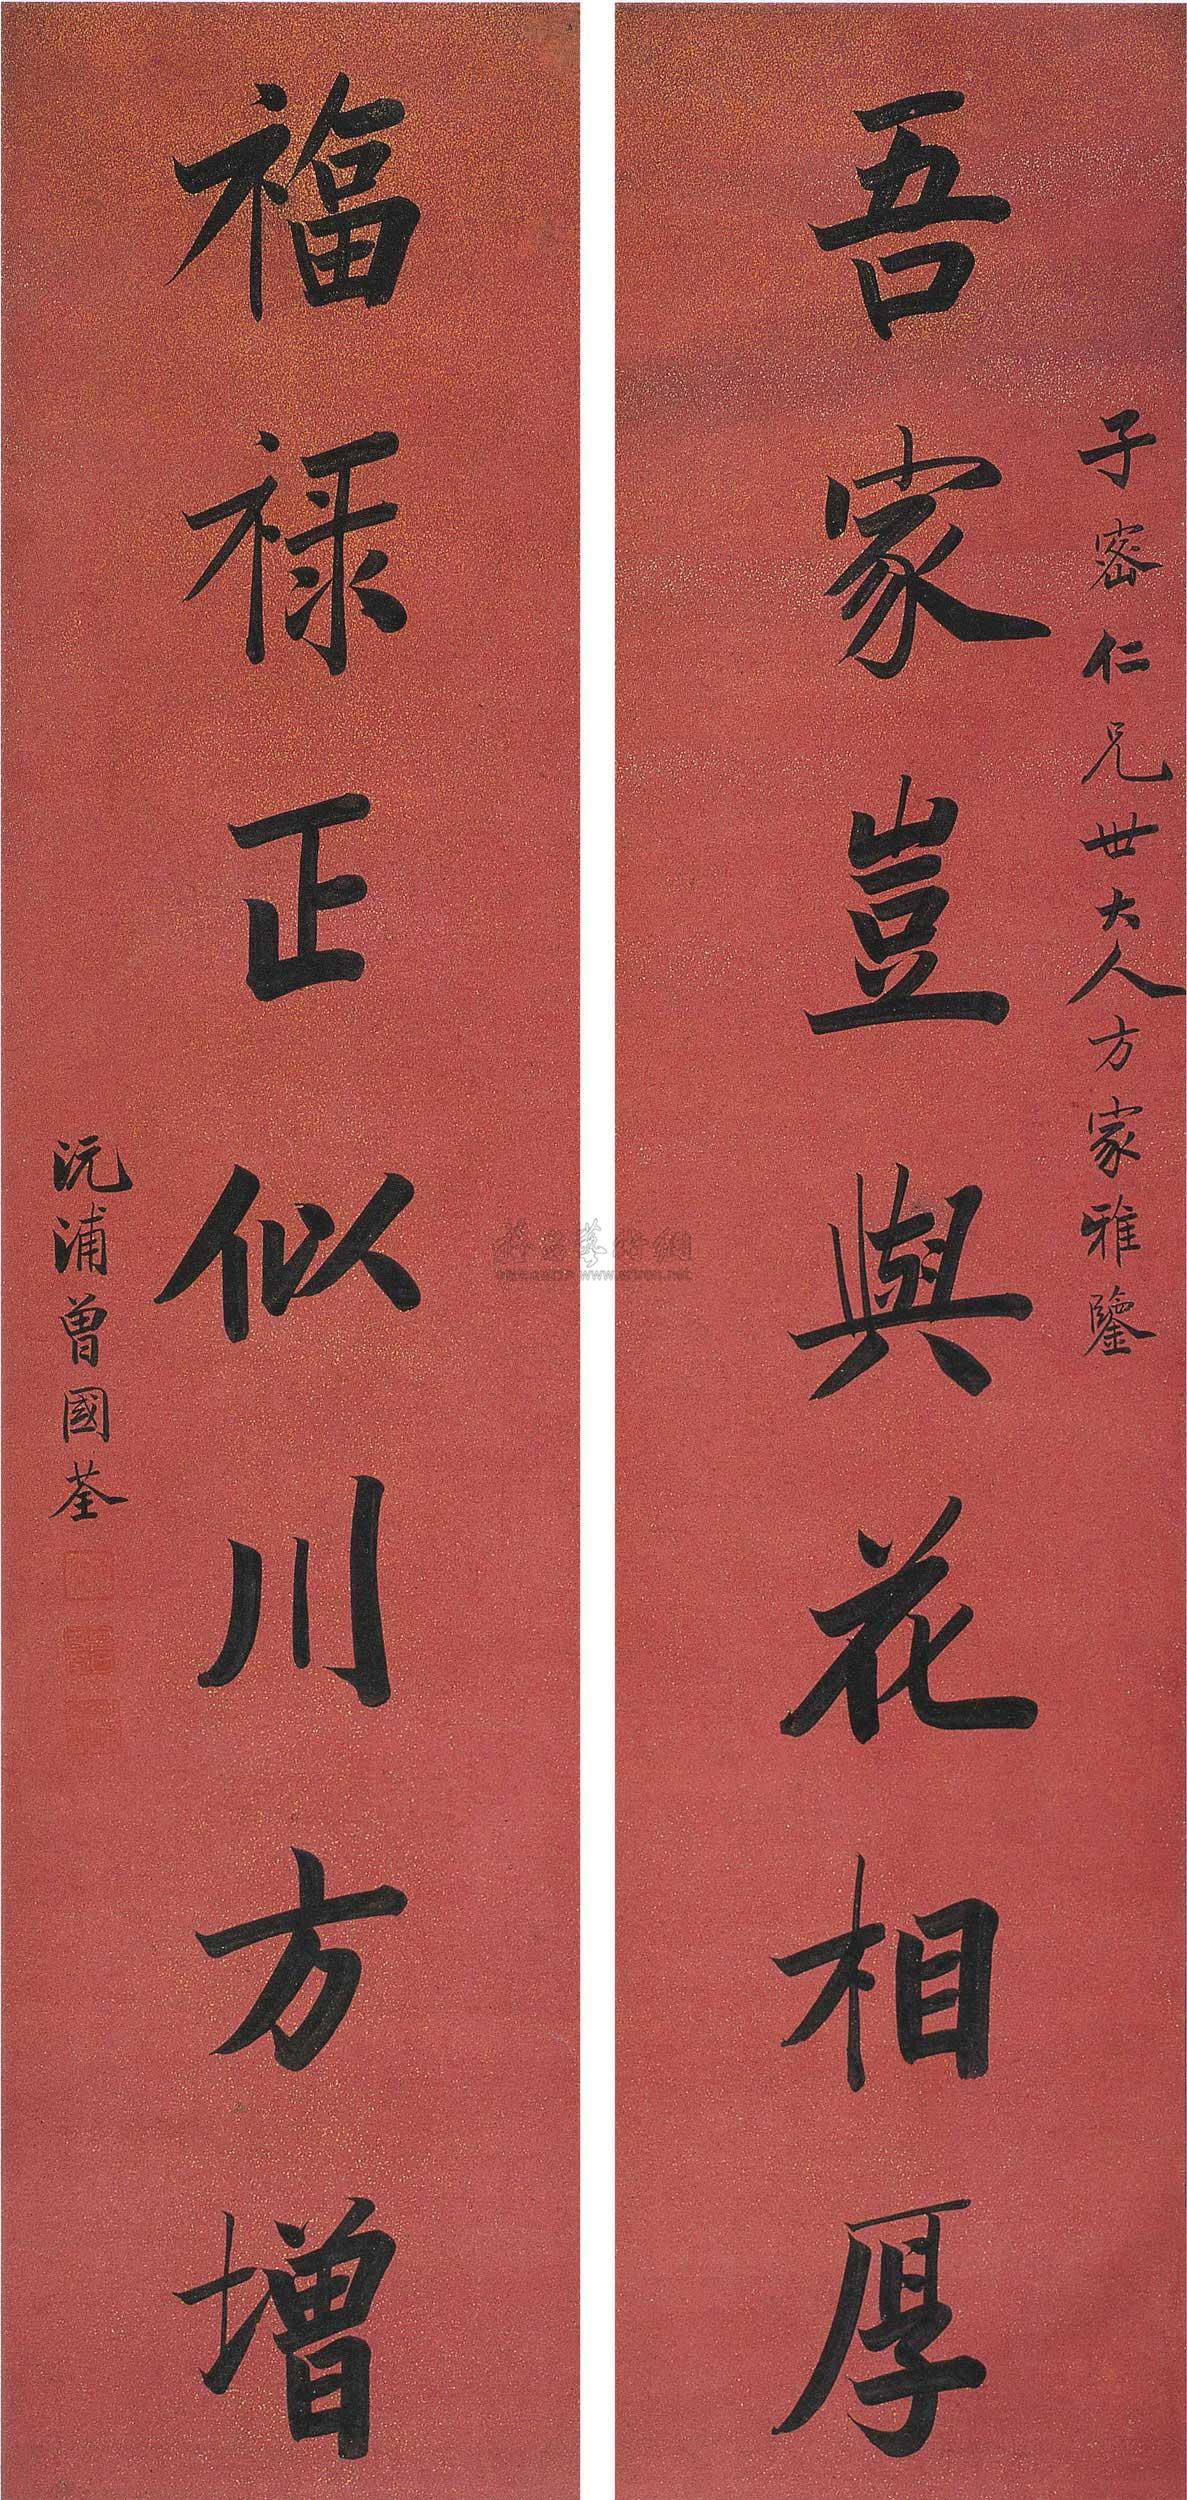 子密仁兄世大人方家雅鑒
吾家豈與花相厚
福祿正似川方增
沅浦曾國荃